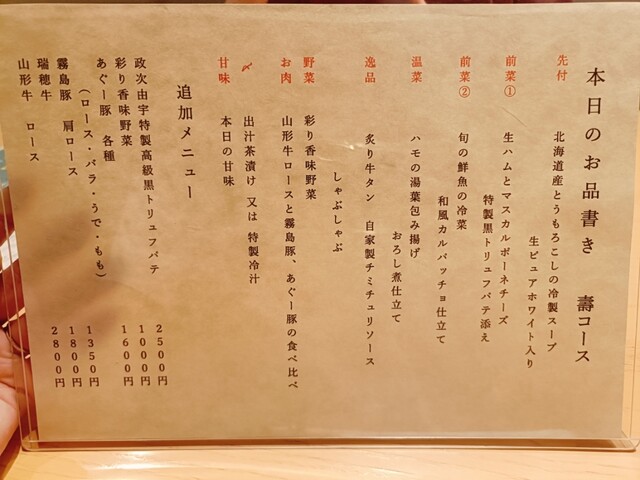 本日のお品書き　壽コース
先付　北海道産とうもろこしの冷製スープ
生ピュアホワイト入り
前菜①　生ハムとマスカルポーネチーズ
特製黒トリュフパテ添え
前菜②　旬の鮮魚の冷菜
和風カルパッチョ仕立て
温菜　ハモの湯葉包み揚げ
おろし煮仕立て
逸品　炙り牛タン　自家製チミチュリソース
しゃぶしゃぶ
野菜　彩り香味野菜
お肉　山形牛ロースと霧島豚、あぐー豚の食べ比べ
〆　出汁茶漬け 又は 特製冷汁
甘味　本日の甘味
追加メニュー
政次由宇特製高級黒トリュフパテ　2500円
彩り香味野菜　1000円
あぐー豚　各種　1600円
（ロース・バラ・うで・もも）
霧島豚　肩ロース　1350円
瑞穂牛　1800円
山形牛　ロース　2800円